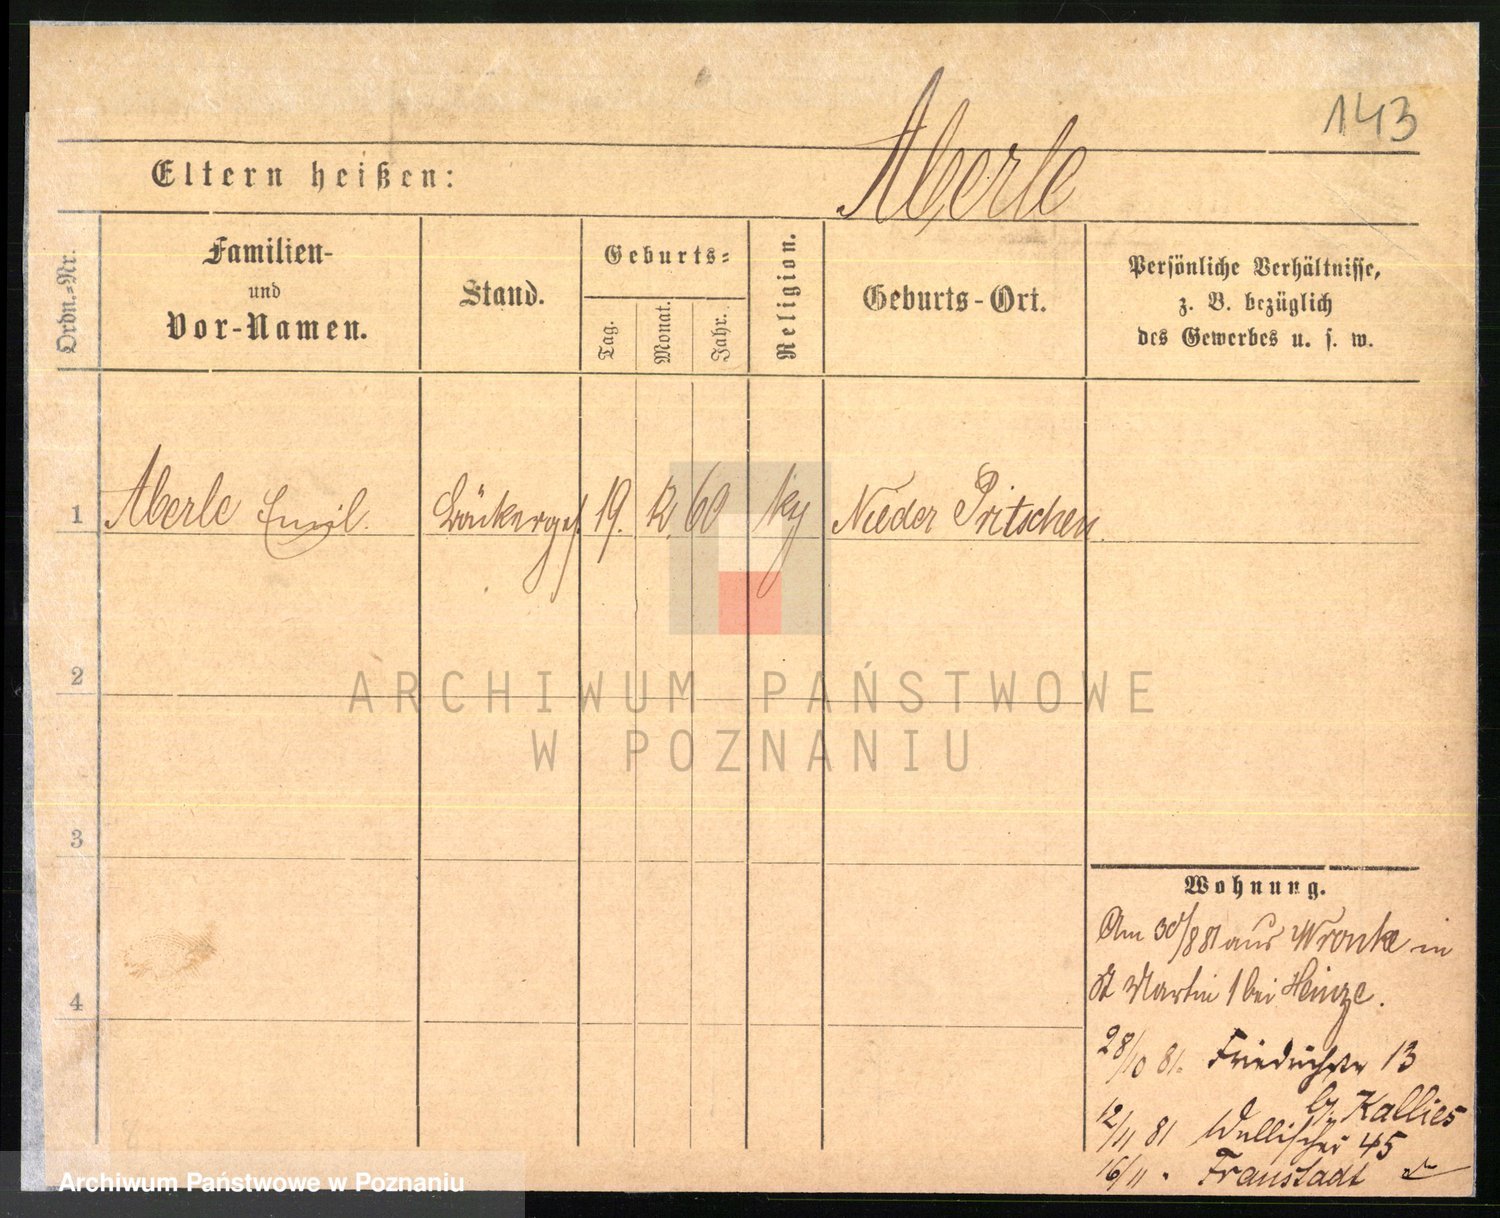 143
Aberle
Eltern heißen:
Ordn.-Nr.
Familien-
und
Vor-Namen.
Stand.
Geburts-
Tag.
Monat.
Jahr.
Religion.
Geburts-Ort.
Persönliche Verhältnisse,
z. B. bezüglich
des Gewerbes u. s. w.
1 Aberle Emil. Bäckerges. 19. 12. 60 Nieder Pritschen
2
3
4
ARCHIWUM PAŃSTWOWE
W POZNANIU
Wohnung.
Am 30/8 81 aus Wronke in
St Martin 1 bei Heinze.
28/10 81. Friedrichstr 13
b. Kallies
12/11 81 45
16/11 " Fraustadt
Archiwum Państwowe w Poznaniu